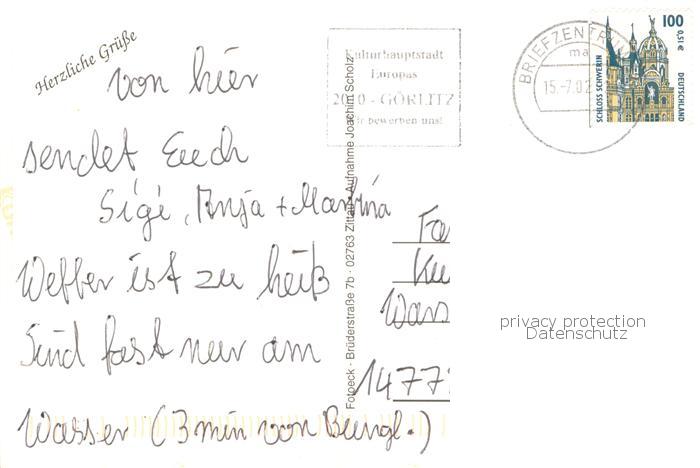 Herzliche Grüße
von hier
sendet Euch
Sigi, Anja + Martina
Wetter ist zu heiß
Sind fast nur am
Wasser (3 min von Bungl.)
Fotoeck · Brüderstraße 7b · 02763 Zittau · Aufnahme Joachim Scholz
Kulturhauptstadt
Europas
2010 - GÖRLITZ
Wir bewerben uns!
BRIEFZENTRUM
ma
15.-7.02
100
0,51 €
SCHLOSS SCHWERIN
DEUTSCHLAND
Fa
Ku
Wass
1477
privacy protection
Datenschutz